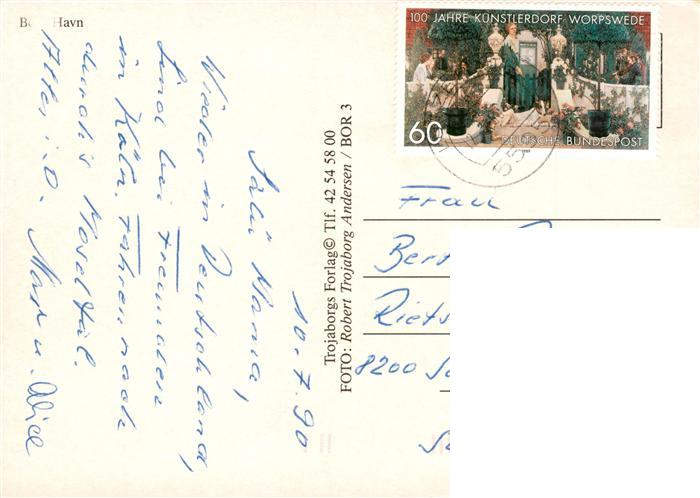 Havn
10.7.90
Salü Mama,
Wieder in Deutschland,
sind bei Freunden
in Köln. Fahren nach
durch's Moseltal.
Alles i.O. Mark u. Alice
Trojaborgs Forlag© Tlf. 42 54 58 00
FOTO: Robert Trojaborg Andersen / BOR 3
100 JAHRE KÜNSTLERDORF WORPSWEDE
60
DEUTSCHE BUNDESPOST
Frau
Bern
Riets
8200 Sc